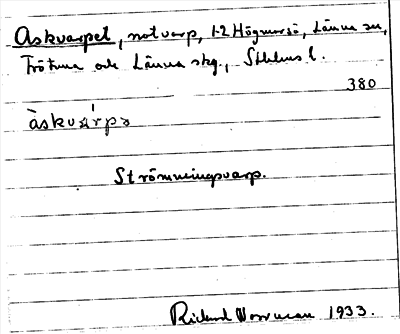 Askvarpet, notvarp, 1-2 Högmarsö, Länna sn,
Frötuna och Länna skg., Sthlms l.
380
àskvàrpə
Strömmingsvarp.
Rickard Norrman 1933.